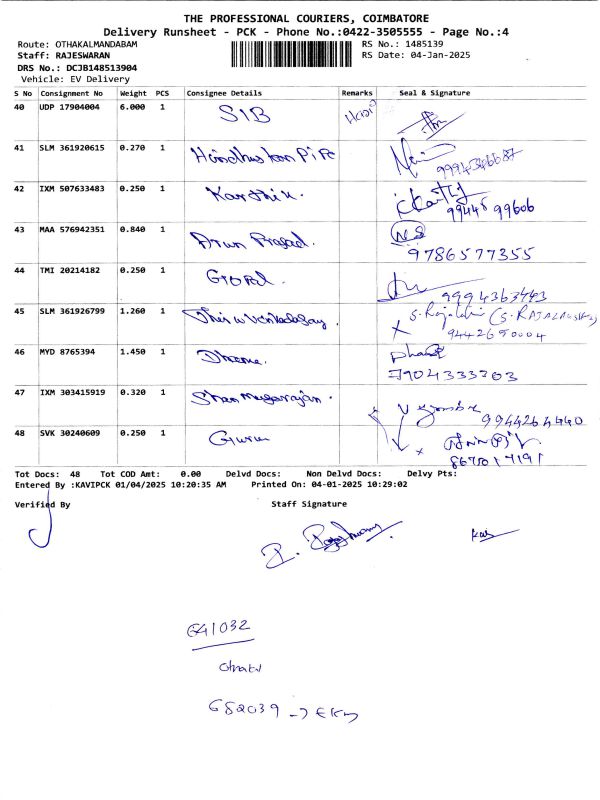 THE PROFESSIONAL COURIERS, COIMBATORE
Delivery Runsheet - PCK - Phone No.:0422-3505555 - Page No.:4
Route: OTHAKALMANDABAM RS No.: 1485139
Staff: RAJESWARAN RS Date: 04-Jan-2025
DRS No.: DCJB148513904
Vehicle: EV Delivery
S No Consignment No Weight PCS Consignee Details Remarks Seal & Signature
40 UDP 17904004 6.000 1 SIB
41 SLM 361920615 0.270 1
42 IXM 507633483 0.250 1 Karthik.
99445 99606
43 MAA 576942351 0.840 1 Arun Prasad. NS
9786577355
44 TMI 20214182 0.250 1 Gopal.
9994363443
45 SLM 361926799 1.260 1 S. Rajalakshmi (S. RAJALAKSHMI)
9442690004
46 MYD 8765394 1.450 1
7904333303
47 IXM 303415919 0.320 1 Shanmugarajan.
9944264440
48 SVK 30240609 0.250 1 Guru
Tot Docs: 48 Tot COD Amt: 0.00 Delvd Docs: Non Delvd Docs: Delvy Pts:
Entered By :KAVIPCK 01/04/2025 10:20:35 AM Printed On: 04-01-2025 10:29:02
Verified By Staff Signature
641032
682039 → EKM